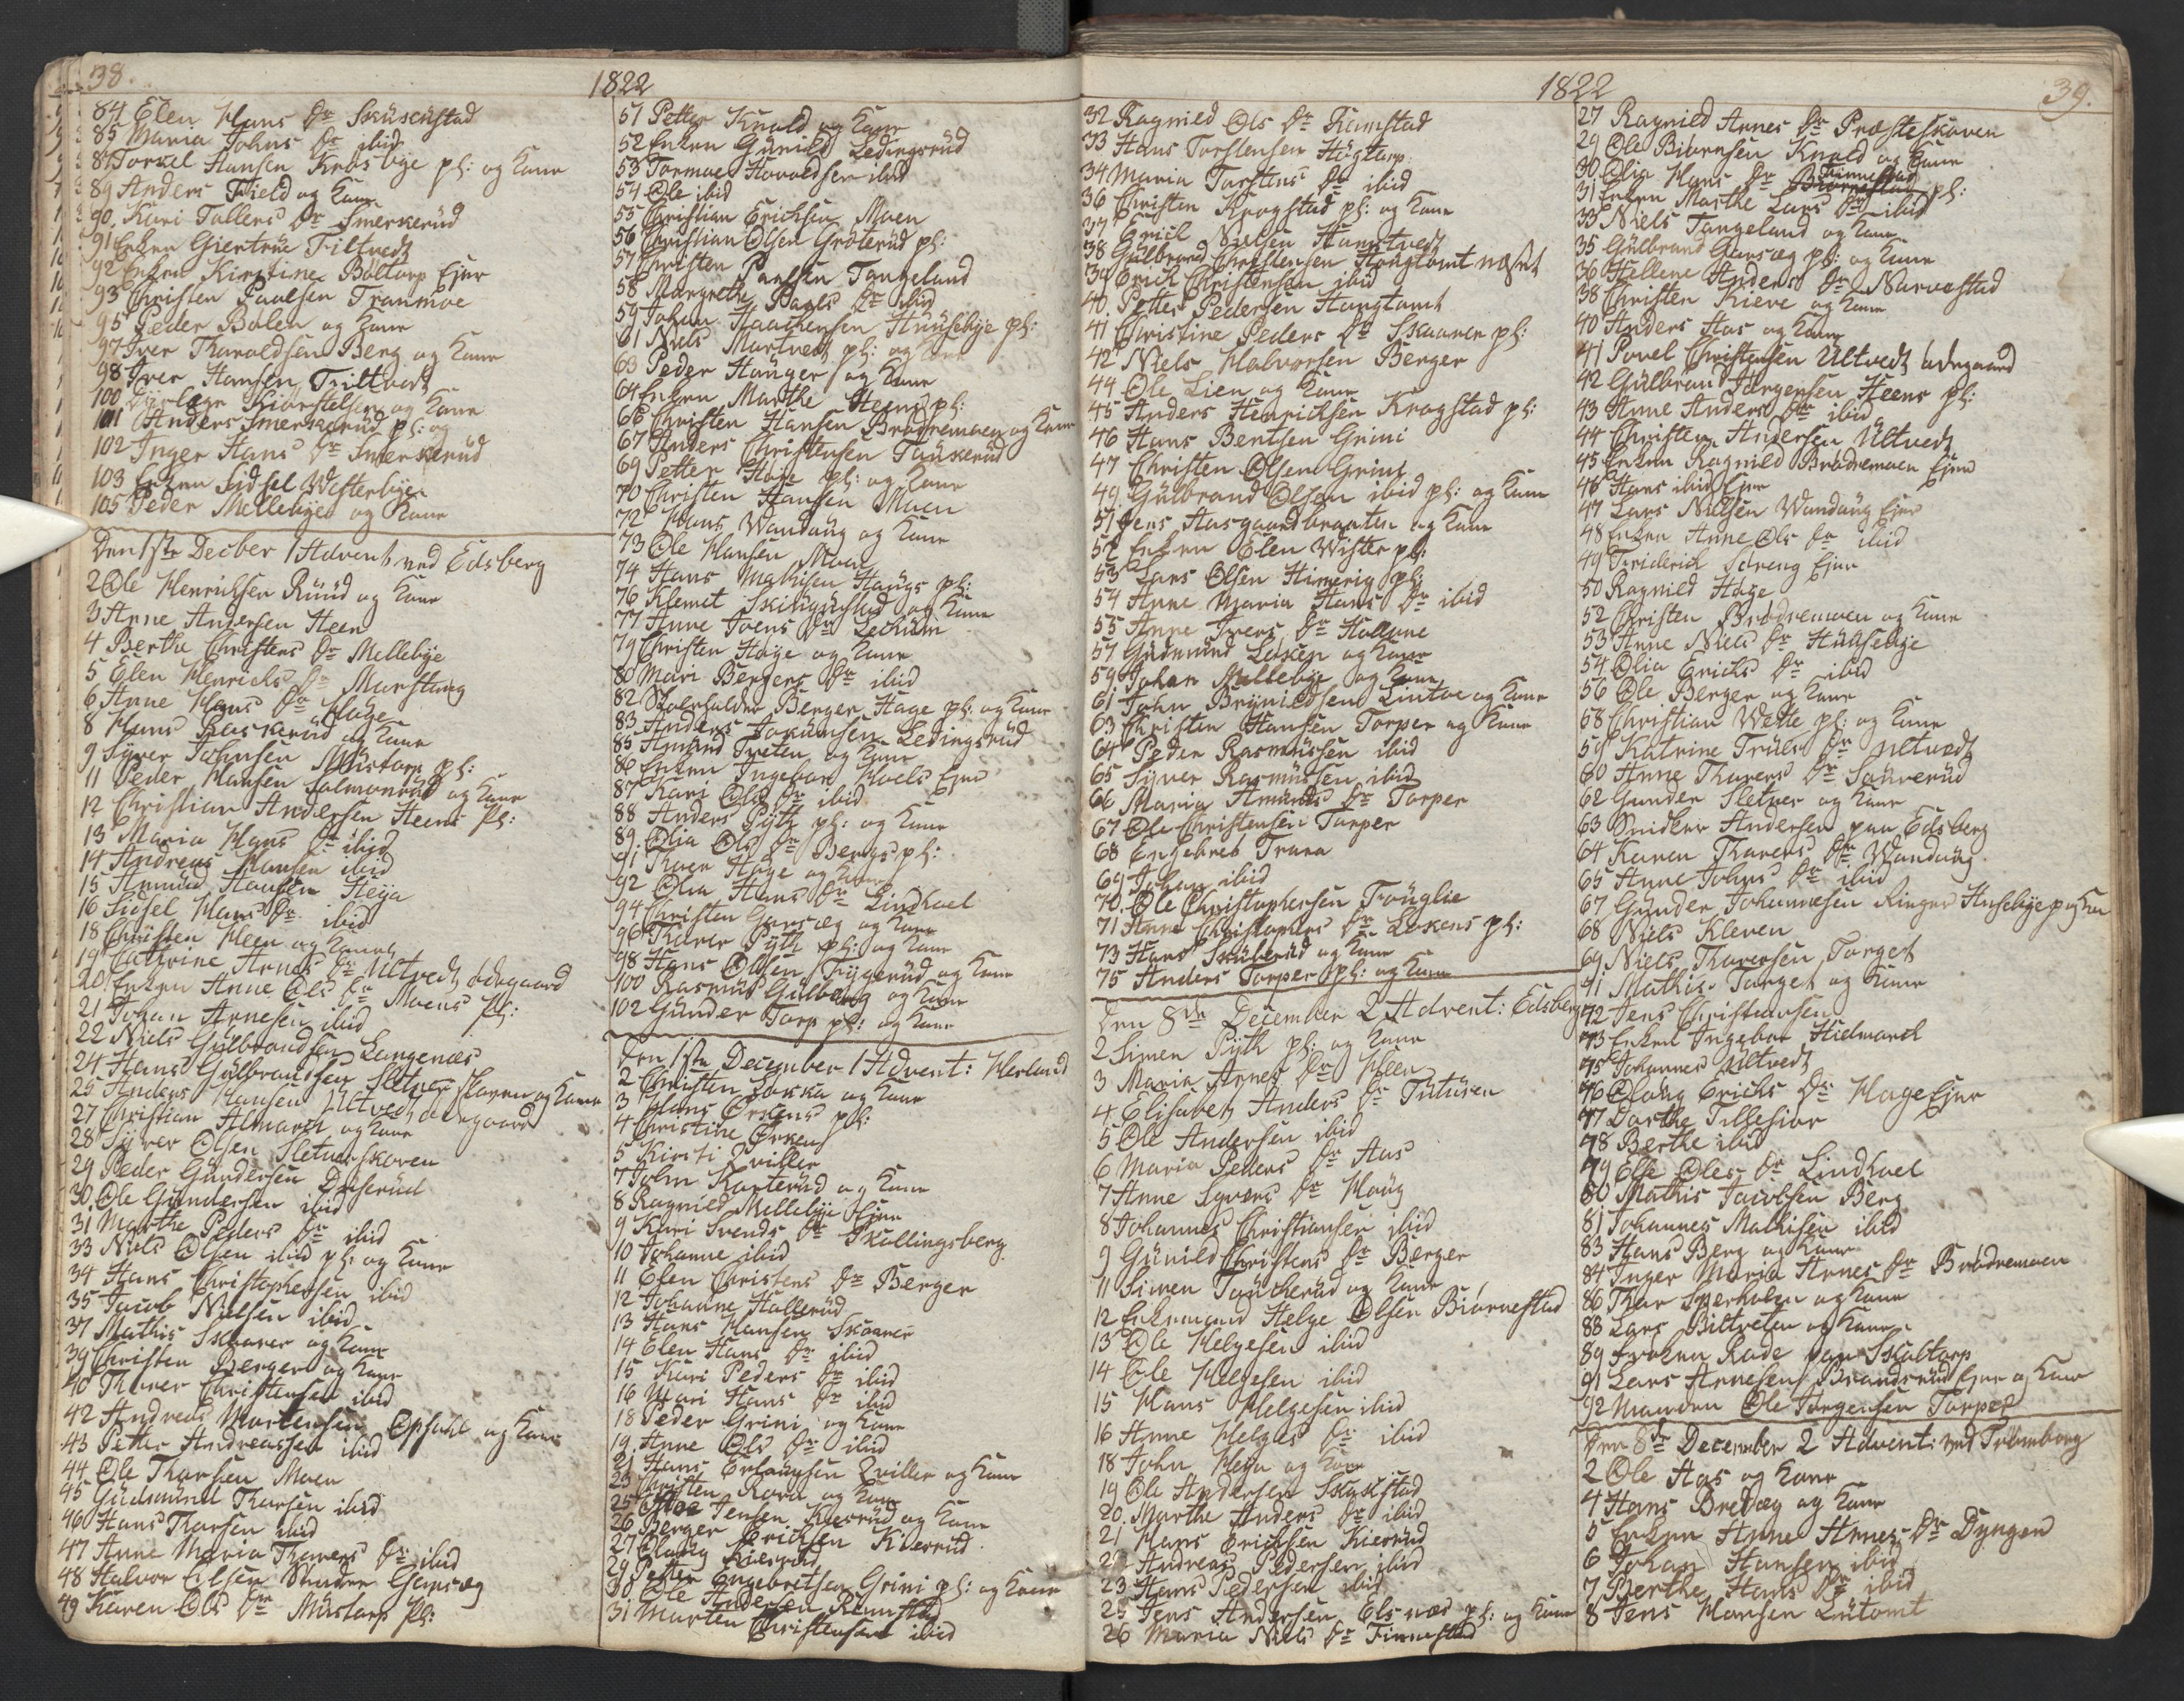 38.
1822
84 Elen Hans Dr Skuscustad
85 Maria Johns Dr ibid
87 Torkel Hansen Krosbye pl: og Kone
89 Anders Field og Kone
90. Kari Tollers Dr Smerkerud
91 Enken Giertrue Tiltvedt
92 Enken Kirstine Böltorp Ejer
93 Christen Paulsen Tranmoe
95 Peder Bølen og Kone
97 Iver Tharaldsen Berg og Kone
98 Iver Hansen Tiltvedt
100 Kiørstelsen og Kone
101 Anders Smerkerud pl: og
102 Inger Hans Dr Smerkerud
103 Enken Sidsel Westerbye
105 Peder Mellebye og Kone
Den 1ste Decber 1 Advent ved Edsberg
2 Ole Henrichsen Ruud og Kone
3 Anne Andersen Heen
4 Berthe Christens Dr Mellebye
5 Elen Henrichs Dr
6 Anne Hans Dr Hage
8 Hans Baskerud og Kone
9 Syver Johnsen Mustorp pl:
11 Peder Hansen Salmonrud og Kone
12 Christian Andersen Heens pl:
13 Maria Hans Dr ibid
14 Andreas Hansen ibid
15 Amund Hansen Heja
16 Sidsel Hans Dr ibid
18 Christen Heen og Kone
19 Cathrine Arnes Dr Ultvedt ødegaard
20 Enken Anne Ols Dr Moens pl:
21 Johan Arnesen ibid
22 Niels Gulbrandsen Langenæs
24 Hans Gulbrandsen Sletner skoven og Kone
25 Anders Hansen Ultvedt ødegaard
27 Christian Almarch og Kone
28 Syver Olsen Sletnerskoven
29 Peder Gundersen Duserud
30. Ole Gundersen ibid
31 Marthe Peders Dr ibid
33 Niels Olsen ibid pl: og Kone
34 Hans Christophersen ibid
35 Jacob Nielsen ibid
37 Mathis Skaarer og Kone
39 Christen Berger og Kone
40 Thorer Christensen ibid
42 Andreas Mortensen Opsahl og Kone
43 Petter Andreassen ibid
44 Ole Thorsen Moen
45 Gudmund Thorsen ibid
46 Hans Thorsen ibid
47 Anne Maria Thorers Dr ibid
48 Halvor Olsen Gansæg
49 Karen Ols Dr Mustorp pl:
51 Petter Knold og Kone
52 Enken Gunild Ledingsrud
53 Tormoe Havoldsen ibid
54 Ole ibid
55 Christian Erichsen Moen
56 Christian Olsen Gröterud pl:
57 Christen Paulsen Tangeland
58 Margrethe Pauls Dr ibid
59 Johan Haachensen Huusebye pl:
61 Niels Martvedt pl: og Kone
63 Peder Haüger og Kone
64 Enken Marthe Heens pl:
66 Christen Hansen Brødremoen og Kone
67 Anders Christensen Tüskerud
69 Petter Hage pl: og Kone
70 Christen Hansen Moen
72 Hans Wandaug og Kone
73 Ole Hansen Moen
74 Hans Mathisen Haugs pl:
76 Klemet Skikustad og Kone
77 Anne Joens Dr Lechum
79 Christen Hage og Kone
80 Mari Bergers Dr ibid
82 Skoleholder Berger Hage pl: og Kone
83 Anders Jokumsen Ledingsrud
85 Amund Træten og Kone
86 Enken Ingebor Hoels Ejer
87 Kari Ols Dr ibid
88 Anders Pyth pl: og Kone
89. Olia Ols Dr Bergs pl:
91 Thoer Hage og Kone
92 Olia Hans Dr Lindhoel
94 Christen Gansæg og Kone
96 Thorer Pyth pl: og Kone
98 Hans Olsen Trygerud og Kone
100 Rasmus Gulberg og Kone
102 Gunder Torp pl: og Kone
Den 1ste December 1 Advent: Herland
2 Christen Lokka og Kone
3 Hans Ørkens pl:
4 Christine Ørken
5 Kirsti Qviller
7 John Korterud og Kone
8 Ragnild Mellebye Ejer
9 Kari Svends Dr Skullingsberg
10 Johanne ibid
11 Elen Christens Dr Berger
12 Johanne Hallerud
13 Hans Hansen Skaarer
14 Elen Hans Dr ibid
15 Kari Peders Dr ibid
16 Mari Hans Dr ibid
18 Peder Grini og Kone
19. Anne Ols Dr ibid
21 Hans Erlandsen Qviller og Kone
23 Christen Kora og Kone
25 Jensen Kierrud og Kone
26 Berger Erichsen Kierrud
27 Olaug Kierrud
29 Petter Engebretsen Grini pl: og Kone
30 Ole Andersen Ramstad
31 Morten Christensen ibid
1822
39.
32 Ragnild Ols Dr Ramstad
33 Hans Torstensen Högtorp
34 Maria Torstens Dr ibid
36 Christen Krogstad pl: og Kone
37 Erich Nielsen Hamtvedt
38 Gulbrand Christensen Haugtomt
39 Erich Christensen ibid
40. Petter Pedersen Haugtomt
41 Christine Peders Dr Skaarer pl:
42 Niels Halvorsen Berger
44 Ole Lien og Kone
45 Anders Henrichsen Krogstad pl:
46 Hans Bentsen Grini
47 Christen Olsen Grini
49 Gulbrand Olsen ibid pl: og Kone
51 Jens Aasgaardbraaten og Kone
52 Enken Elen Wister pl:
53 Lars Olsen Himerig pl:
54 Anne Maria Hans Dr ibid
55 Anne Ivers Dr Hollene
57 Gudmund Løken og Kone
59 Johan Mellebye og Kone
61 John Brynildsen Lintoe og Kone
63 Christen Hansen Torper og Kone
64 Peder Rasmussen ibid
65 Syver Rasmussen ibid
66 Maria Amunds Dr Torper
67 Ole Christensen Torper
68 Engebret Trara
69 Johan ibid
70. Ole Christophersen Frøuglie
71 Anne Christophers Dr Løkens pl:
73 Hans Skuberud og Kone
75 Anders Torper pl: og Kone
Den 8de December 2 Advent: Edsberg
2 Simen Pyth pl: og Kone
3 Maria Arnes Dr Heen
4 Elisabet Anders Dr Tuturen
5 Ole Andersen ibid
6 Maria Peders Dr Aas
7 Anne Syvers Dr Haug
8 Johannes Christiansen ibid
9 Gunild Christens Dr Berger
11 Simen Taucherud og Kone
12 Enkemand Helge Olsen Biørnestad
13 Ole Helgesen ibid
14 Ole Helgesen ibid
15 Hans Helgesen ibid
16 Anne Helges Dr ibid
18 John Heja og Kone
19 Ole Andersen Skukstad
20. Marthe Anders Dr ibid
21 Hans Erichsen Kierrud
22 Andreas Pedersen ibid
23 Hans Pedersen ibid
25 Jens Andersen Elsnæs pl: og Kone
26 Maria Niels Dr Finnestad
27 Ragnild Arnes Dr Præsteskoven
29 Ole Biørnsen Knold og Kone
30 Olia Hans Dr Finnestad pl:
31 Enken Marthe Lars Dr ibid
33 Niels Tangeland og Kone
35 Gulbrand Gansæg pl: og Kone
36 Hellene Anders Dr Narvestad
38 Christen Kieve og Kone
40 Anders Aas og Kone
41 Povel Christensen Ultvedt ødegaard
42 Gulbran Jørgensen Heens pl:
43 Anne Anders Dr ibid
44 Christen Andersen Ultvedt
45 Enken Ragnild Brødremoen Ejer
46 Hans ibid Ejer
47 Lars Nielsen Wandaug Ejer
48 Enken Anne Ols Dr ibid
49 Friderich Schreng Ejer
50 Ragnild Hage
52 Christen Brødremoen og Kone
53 Anne Niels Dr Huusebye
54 Olia Erichs Dr ibid
56 Ole Berger og Kone
68 Christian Weste pl: og Kone
59 Katrine Truls Dr Ultvedt
60 Anne Thorers Dr Saxerud
62 Gunder Sletner og Kone
63 Andersen paa Edsberg
64 Karen Thorers Dr Wandaug
65 Anne Johns Dr ibid
67 Gunder Johannesen Ringer Husebye p og Kon
68 Niels Kleven
69 Niels Thoresen Torget
71 Mathis Torget og Kone
72 Jens Christiansen
73 Enken Ingebor Hiedmarch
75 Johannes Ultvedt
76 Olaug Erichs Dr Hage Ejer
77 Dorthe Tillesiør
78 Berthe ibid
79 Else Oles Dr Lindhoel
80 Mathis Jacobsen Berg
81 Johannes Mathisen ibid
83 Hans Berg og Kone
84 Inger Maria Arnes Dr Brødremoen
86 Thor og Kone
88 Lars Bittveten og Kone
89 Frøken Rade paa Skaltorp
91 Lars Arnesen Brandsrud Ejer og Kone
92 Ole Jørgensen Torper
Den 8de December 2 Advent: ved Trømborg
2 Ole Aas og Kone
4 Hans Bredæg og Kone
5 Enken Anne Arnes Dr Dyngen
6 Johan Hansen ibid
7 Berthe Hans Dr ibid
8 Jens Hansen Lütomt